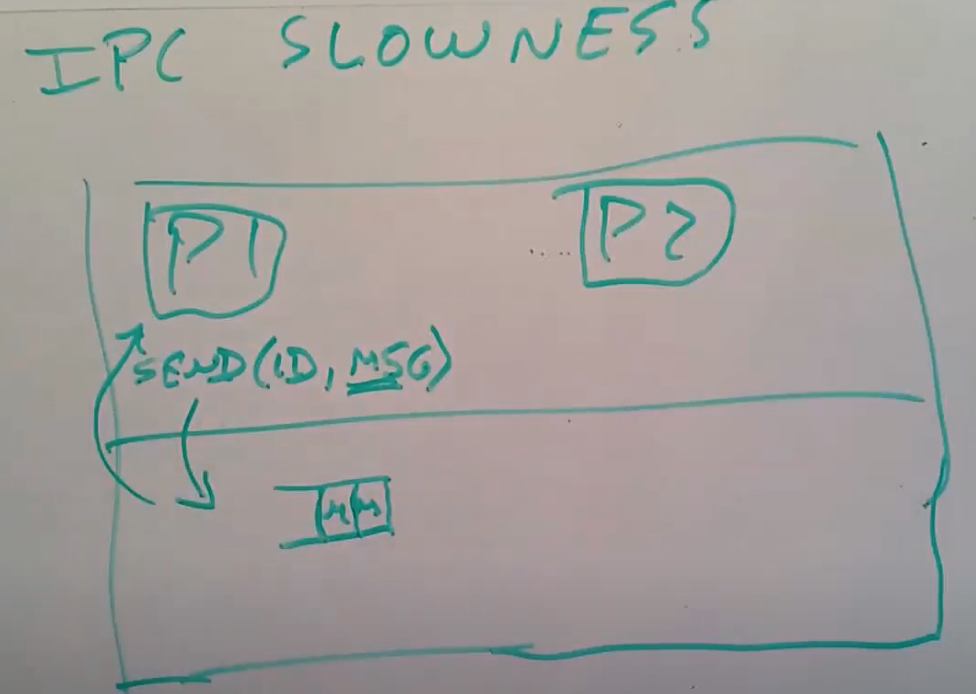 IPC SLOWNESS
P1
P2
SEND(ID, MSG)
M M